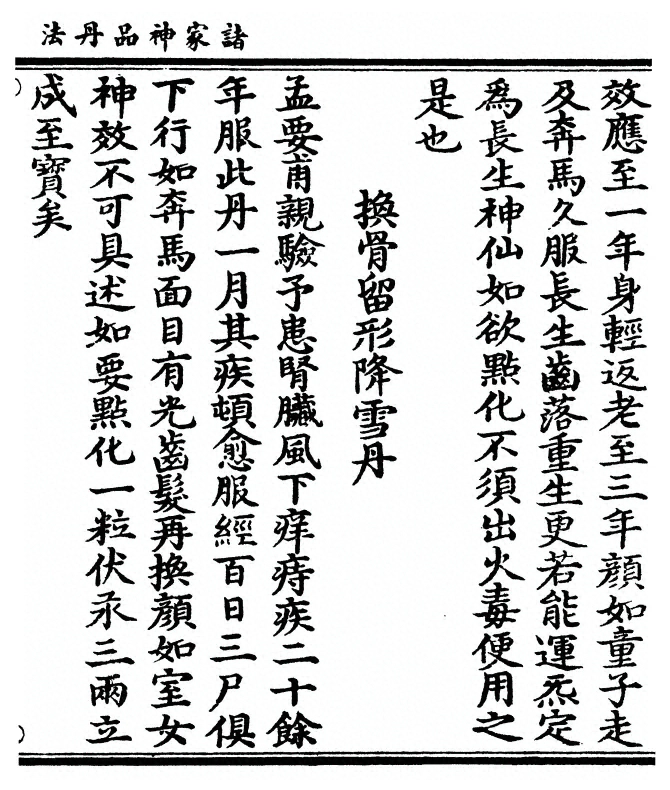 諸家神品丹法
效應至一年身輕返老至三年顏如童子走
及奔馬久服長生齒落重生更若能運炁定
爲長生神仙如欲點化不須出火毒便用之
是也
換骨留形降雪丹
孟要甫親驗予患腎臟風下痒痔疾二十餘
年服此丹一月其疾頓愈服經百日三尸俱
下行如奔馬面目有光齒髮再換顏如室女
神效不可具述如要點化一粒伏汞三兩立
成至寶矣